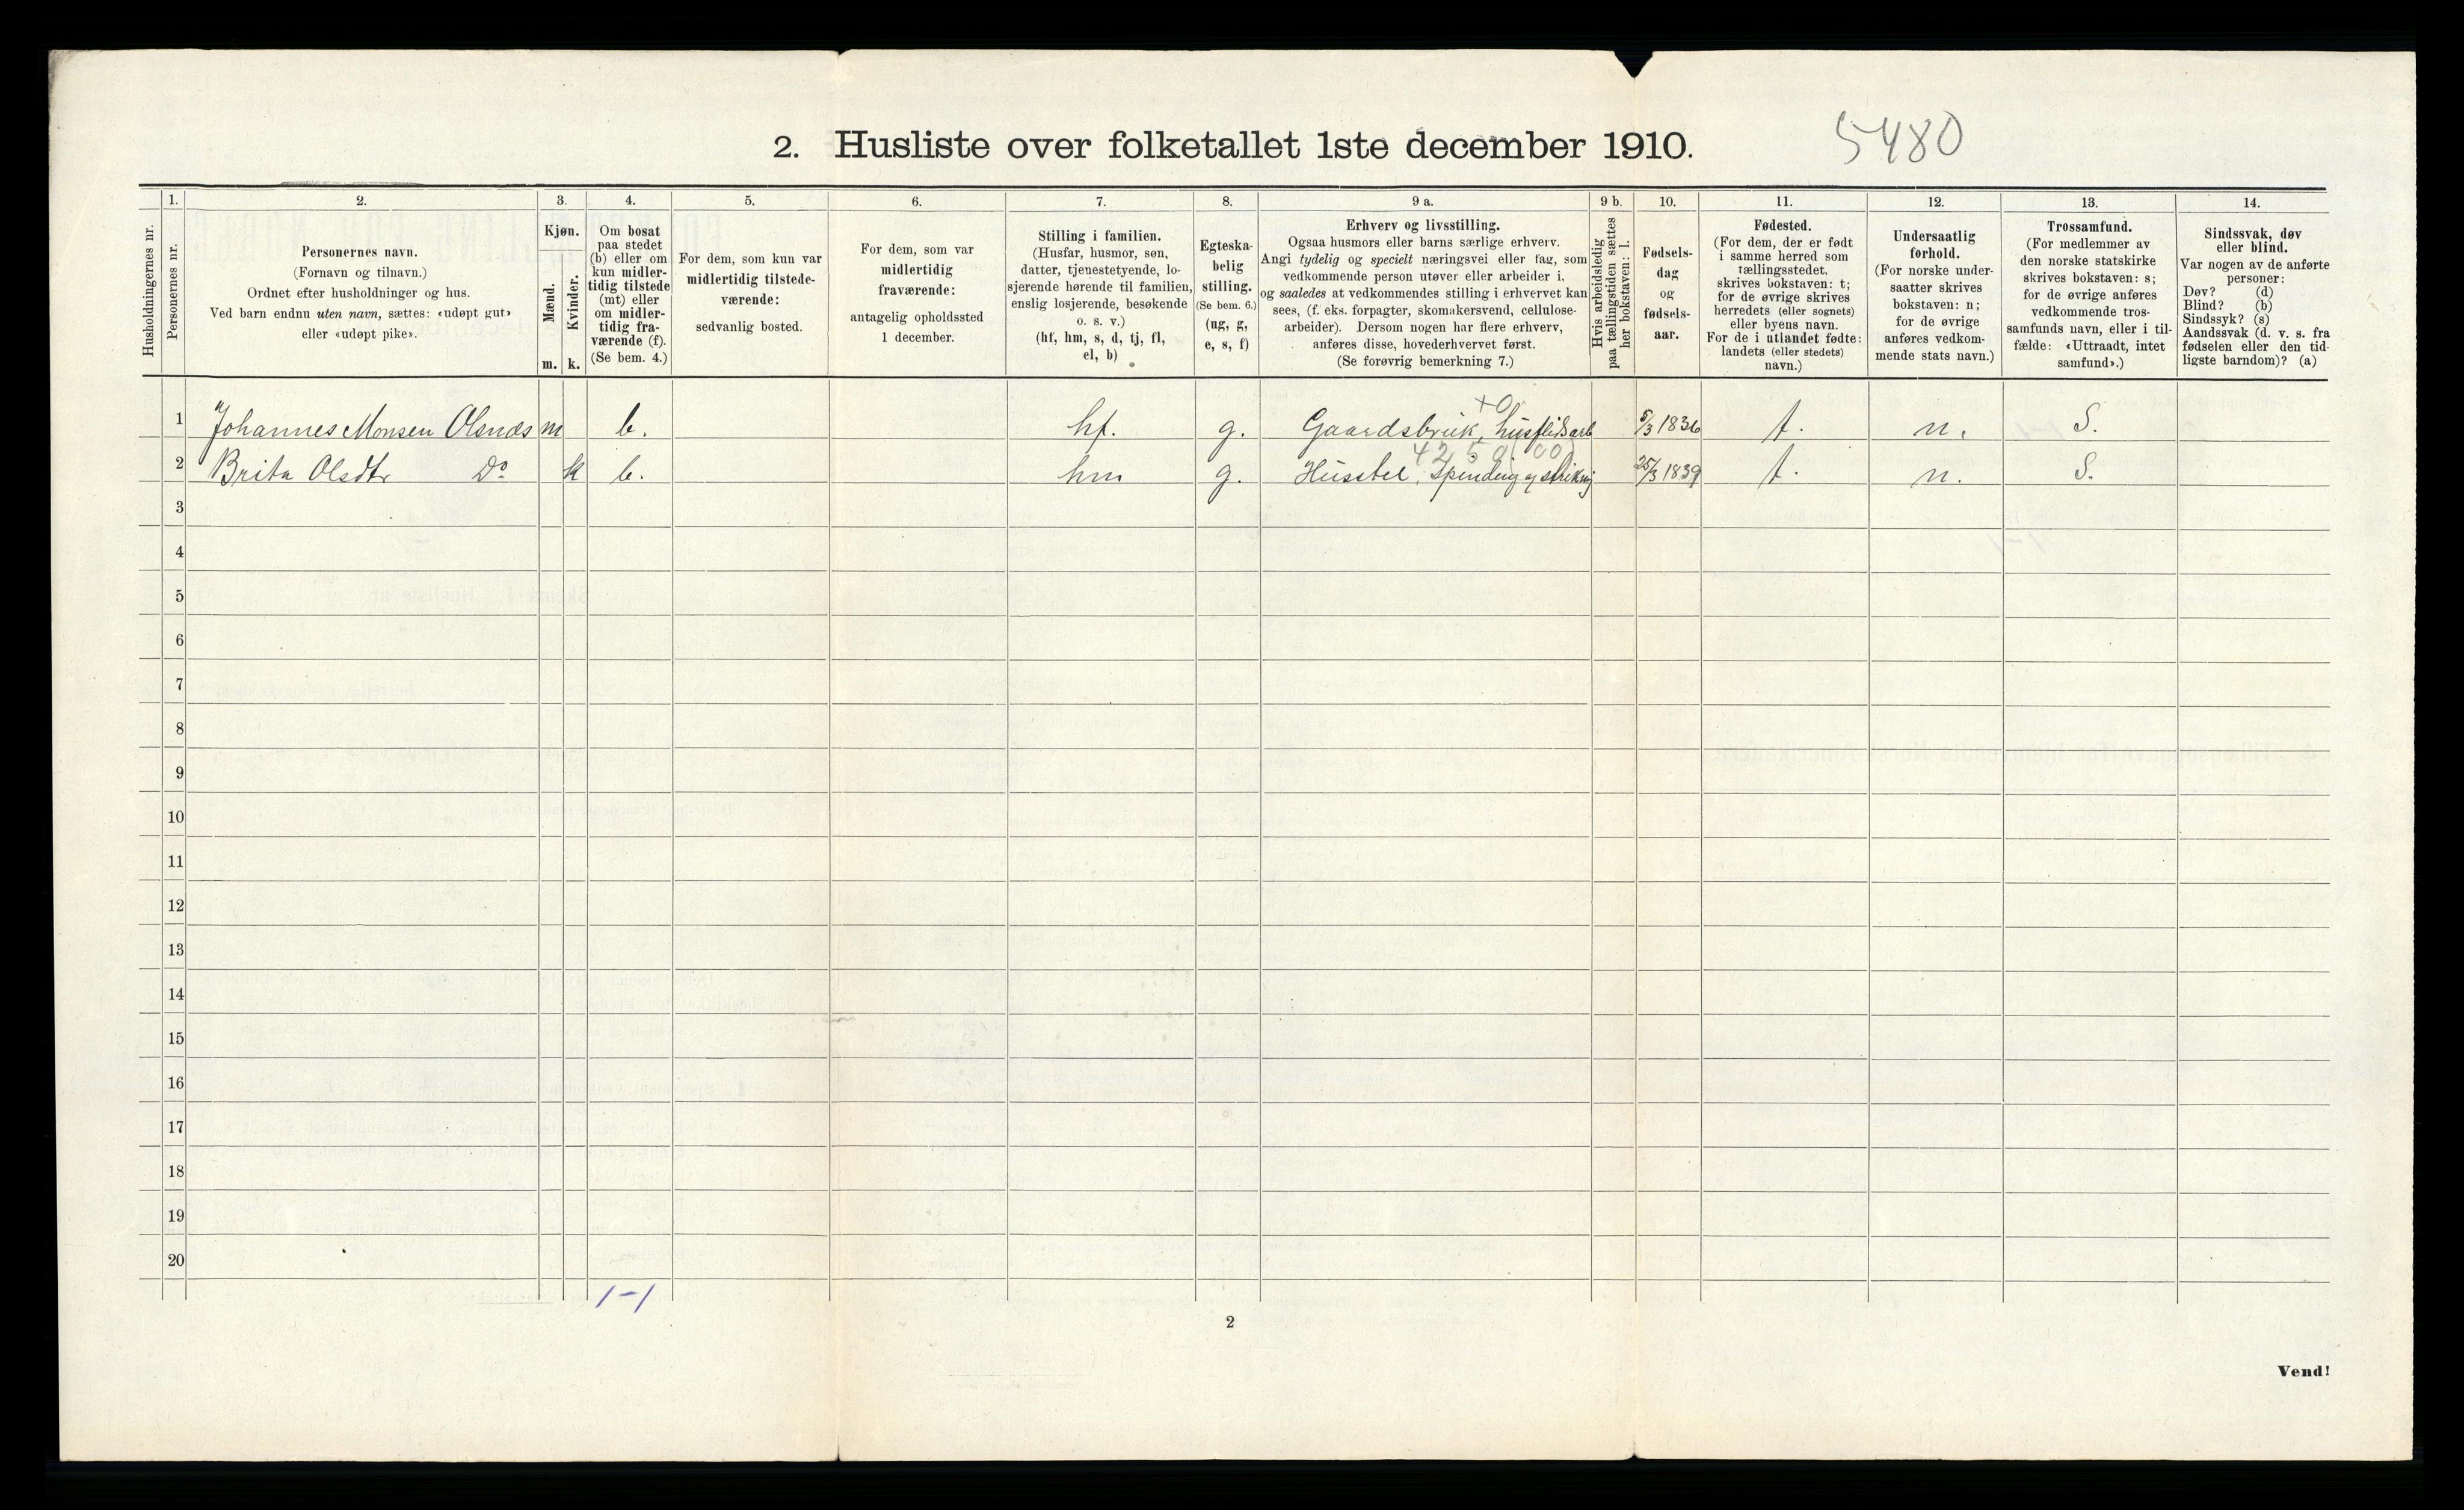 2. Husliste over folketallet 1ste december 1910.
5480
Husholdningernes nr.
1.
Personernes nr.
2.
Personernes navn.
(Fornavn og tilnavn.)
Ordnet efter husholdninger og hus.
Ved barn endnu uten navn, sættes: «udøpt gut»
eller «udøpt pike».
3.
Kjøn.
Mænd.
Kvinder.
m.
k.
4.
Om bosat
paa stedet
(b) eller om
kun midler-
tidig tilstede
(mt) eller
om midler-
tidig fra-
værende (f).
(Se bem. 4.)
5.
For dem, som kun var
midlertidig tilstede-
værende:
sedvanlig bosted.
6.
For dem, som var
midlertidig
fraværende:
antagelig opholdssted
1 december.
7.
Stilling i familien.
(Husfar, husmor, søn,
datter, tjenestetyende, lo-
sjerende hørende til familien,
enslig losjerende, besøkende
o. s. v.)
(hf, hm, s, d, tj, fl,
el, b)
8.
Egteska-
belig
stilling.
(Se bem. 6.)
(ug, g,
e, s, f)
9 a.
Erhverv og livsstilling.
Ogsaa husmors eller barns særlige erhverv.
Angi tydelig og specielt næringsvei eller fag, som
vedkommende person utøver eller arbeider i,
og saaledes at vedkommendes stilling i erhvervet kan
sees, (f. eks. forpagter, skomakersvend, cellulose-
arbeider). Dersom nogen har flere erhverv,
anføres disse, hovederhvervet først.
(Se forøvrig bemerkning 7.)
9 b.
Hvis arbeidsledig
paa tællingstiden sættes
her bokstaven: l.
10.
Fødsels-
dag
og
fødsels-
aar.
11.
Fødested.
(For dem, der er født
i samme herred som
tællingsstedet,
skrives bokstaven: t;
for de øvrige skrives
herredets (eller sognets)
eller byens navn.
For de i utlandet fødte:
landets (eller stedets)
navn.)
12.
Undersaatlig
forhold.
(For norske under-
saatter skrives
bokstaven: n;
for de øvrige
anføres vedkom-
mende stats navn.)
13.
Trossamfund.
(For medlemmer av
den norske statskirke
skrives bokstaven: s;
for de øvrige anføres
vedkommende tros-
samfunds navn, eller i til-
fælde: «Uttraadt, intet
samfund».)
14.
Sindssvak, døv
eller blind.
Var nogen av de anførte
personer:
Døv? (d)
Blind? (b)
Sindssyk? (s)
Aandssvak (d. v. s. fra
fødselen eller den tid-
ligste barndom)? (a)
+0
1 Johannes Monsen Olsnes m b. hf. g. Gaardsbruk, husflidsarb 5/3 1836 t. n. S.
2 Brita Olsdtr Do k b. hm g. Husstel, Spinding og strikning 25/3 1839 t. n. S.
3
4
5
6
7
8
9
10
11
12
13
14
15
16
17
18
19
20
1-1
2
Vend!